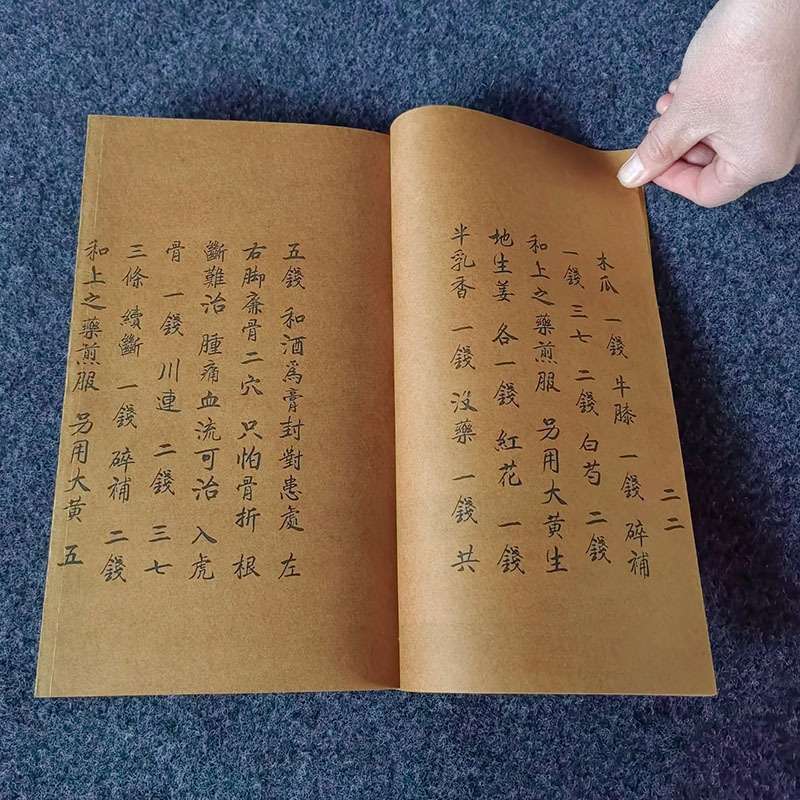 二二
木瓜 一錢 牛膝 一錢 碎補
一錢 三七 二錢 白芍 二錢
和上之藥煎服 另用大黄生
地生姜 各一錢 紅花 一錢
半乳香 一錢 没藥 一錢 共
五錢 和酒爲膏封對患處 左
右脚廉骨二穴 只怕骨折 根
斷難治 腫痛血流可治 入虎
骨 一錢 川連 二錢 三七
三條 續斷 一錢 碎補 二錢
和上之藥煎服 另用大黄 五